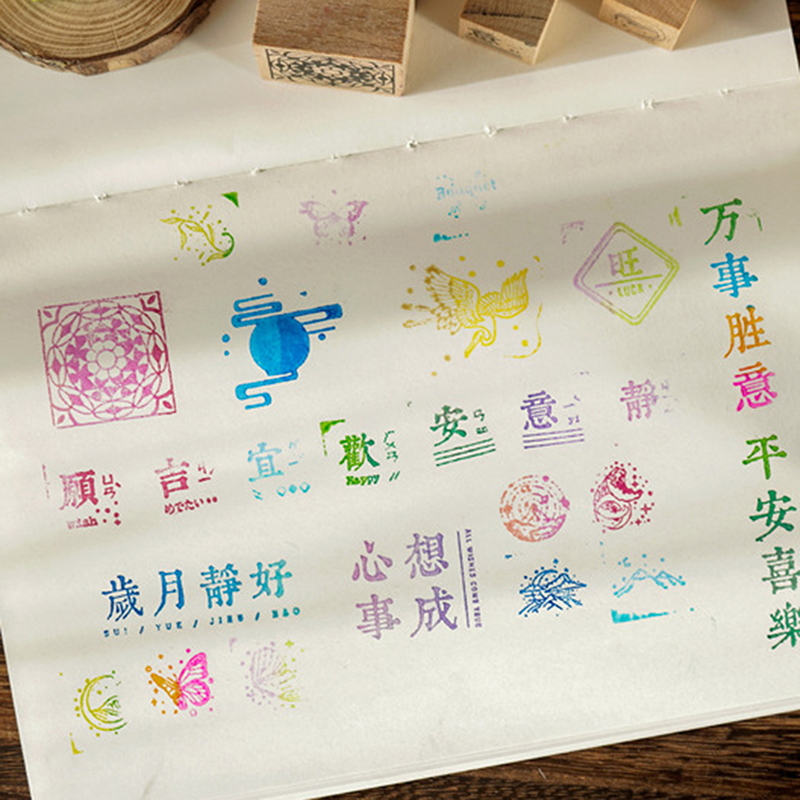 Bouquet
旺
LUCK
万事胜意
平安喜樂
願
ㄩㄢ
wish
吉
めでたい
宜
歡
ㄏㄨㄢ
Happy
安
ㄢ
意
yi
靜
歲月靜好
SUI / YUE / JING / HAO
心想
事成
ALL WISHES COME TRUE